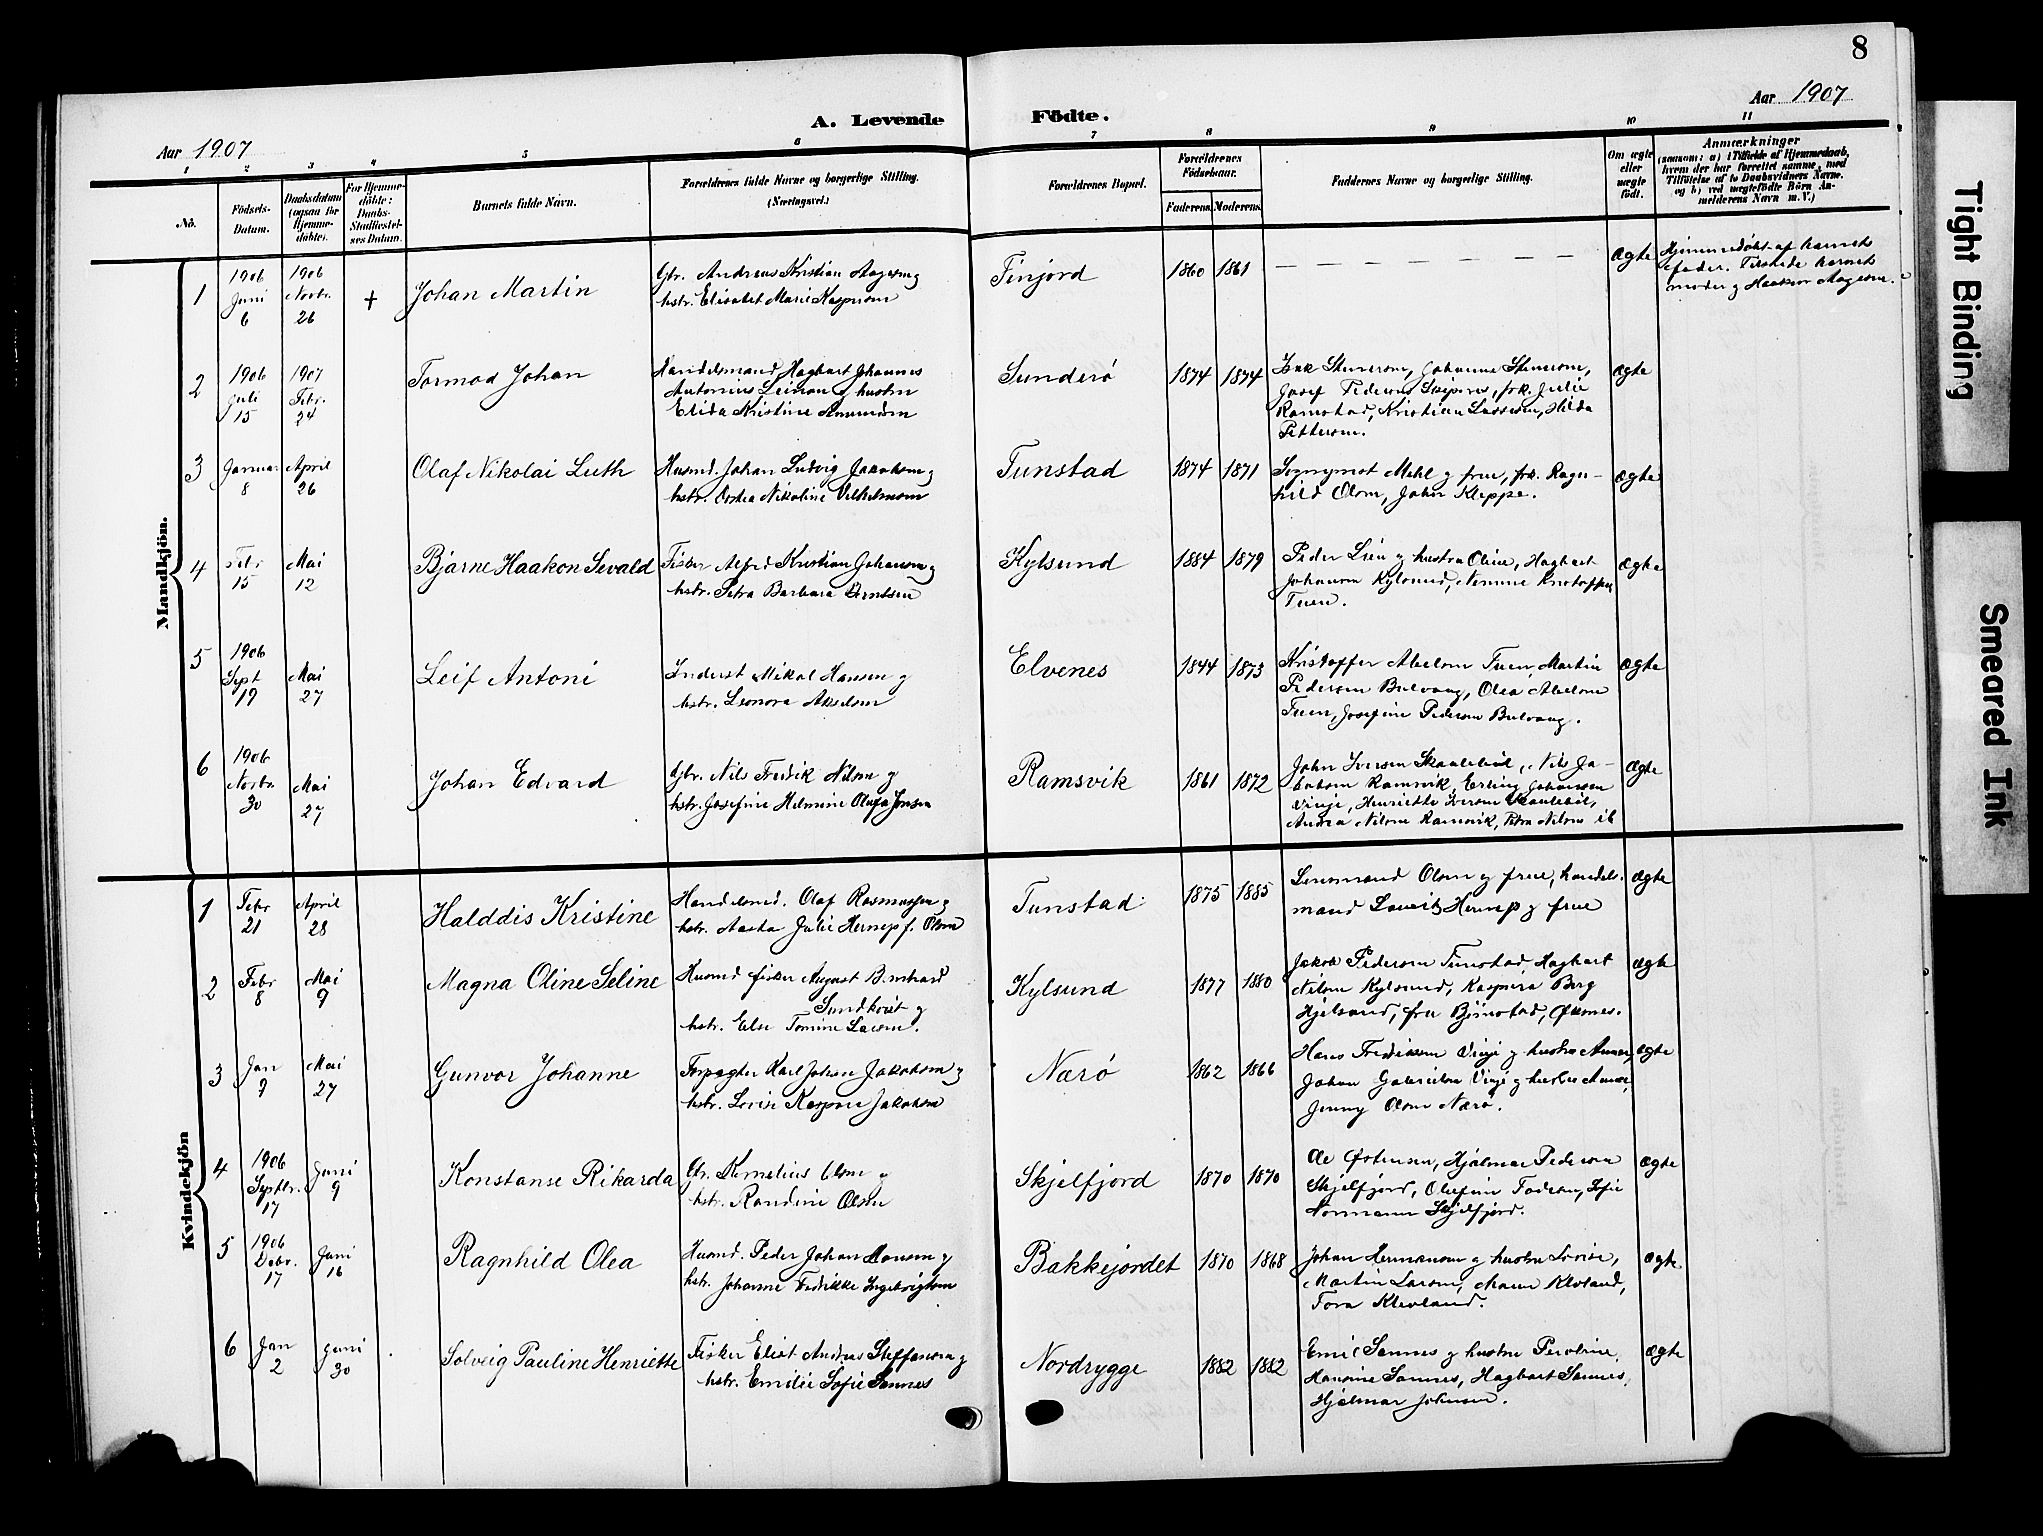 8
Aar 1907
A. Levende Födte.
Aar 1907
1 2 3 4 5 6 7 8 9 10 11
No.
Födsels-
Datum.
Daabsdatum
(ogsaa for
Hjemme-
döbte).
For Hjemme-
döbte:
Daabs-
Stadfæstel-
ses Datum.
Barnets fulde Navn.
Forældrenes fulde Navne og borgerlige Stilling.
(Næringsvei.)
Forældrenes Bopæl.
Forældrenes
Födselsaar.
Faderens. Moderens.
Faddernes Navne og borgerlige Stilling.
Om ægte
eller
uægte
födt.
Anmærkninger
(saasom: a) i Tilfælde af Hjemmedaab,
hvem der har forrettet samme, med
Tilföielse af to Daabsvidners Navne.
og b) ved uægtefödte Börn An-
melderens Navn m. V.)
Mandkjön.
1
1906
Juni
6
1906
Novbr.
26
+
Johan Martin
Gbr. Andreas Kristian Aagesen og
hstr. Elisabet Marie Kaspersen
Finjord
1860 1861
— — — — — — — — — —
Ægte
Hjemmedøbt af barnets
fader. Tilstede barnets
moder og Haakon Aagesen.
2
1906
Juli
15
1907
Febr.
24
Tormod Johan
Handelsmand Hagbart Johannes
Antonius Leinan og hustru
Elida Kristine Amundsen
Sunderø
1874 1874
Johanne
Josef
frk. Julie
Ramstad, Kristian Lassesen, Hilda
Pettersen.
Ægte
3
Januar
8
April
26
Olaf Nikolai Luth
Husmd. Johan Ludvig Jakobsen og
hstr. Nikoline Vilhelmsen
Tunstad
1874 1871
Sogneprest Mehl og frue, frk. Ragn-
hild Olsen, Johan Kleppe.
Ægte
4
Febr
15
Mai
12
Bjarne Haakon Sevald
Fisker Alfred Kristian Johansen og
hstr. Petra Barbara Berntsen
Kylsund
1884 1879
Peder Lien og hustru Oline, Hagbart
Johansen Kylsund,
Tuen.
Ægte
5
1906
Sept
19
Mai
27
Leif Antoni
Inderst Mikal Hansen og
hstr. Leonora Akselsen
Elvenes
1844 1873
Kristoffer Abelsen Tuen, Martin
Pedersen Bulvang, Olea Abelsen
Tuen, Josefine Pedersen Bulvang.
Ægte
6
1906
Novbr.
30
Mai
27
Johan Edvard
Gbr. Nils Fredrik Nilsen og
hstr. Josefine Helmine Olufa Jensen
Ramsvik
1861 1872
John Iversen Skaalebøl, Nils Ja-
kobsen Ramsvik, Erling Johansen
Vinje, Henriette Iversen Skaalebøl,
Andrea Nilsen Ramsvik, Petra Nilsen ib
Ægte
Kvindekjön
1
Febr
21
April
28
Halddis Kristine
Handelsmd. Olaf Rasmussen og
hstr. Aasta Julie f. Olsen
Tunstad
1875 1885
Lensmand Olsen og frue, handels-
mand og frue
Ægte
2
Febr
8
Mai
9
Magna Oline Seline
Husmd fisker August Bernhard
Sundkvist og
hstr. Else Tomine Larsen.
Kylsund
1877 1880
Jakob Pedersen Tunstad, Hagbart
Nilsen Kylsund, Kaspara Berg
Hjelsand, fru Bjørnstad, Øksnes.
Ægte
3
Jan
9
Mai
27
Gunvor Johanne
Forpagter Karl Johan Jakobsen og
hstr. Lovise Jakobsen
Nærø
1862 1866
Hans Fredriksen Vinje og hustru Anna,
Johan Gabrielsen Vinje og hustru Anna,
Jenny Olsen Nærø.
Ægte
4
1906
Septbr.
17
Juni
9
Konstanse Rikarda
Gbr. Kornelius Olsen og
hstr. Randine Olsen
Skjelfjord
1870 1870
Ole Østensen, Hjalmar Pedersen
Skjelfjord, Olufine
Normann Skjelfjord.
Ægte
5
1906
Debr.
17
Juni
16
Ragnhild Olea
Husmd. Peder Johan Hansen og
hstr. Johanne Fredrikke Ingebrigtsen
Bakkejordet
1870 1868
Johan Hermansen og hustru Lovise,
Martin Larsen, Klevland,
Tora Klevland.
Ægte.
6
Jan
2
Juni
30
Solveig Pauline Henriette
Fisker Eliot Andreas Steffensen og
hstr. Emilie Sofie Sannes
Nordrygge
1882 1882
Emil Sannes og hustru
Hansine Sannes, Hagbart Sannes,
Hjalmar Johnsen.
Ægte
Tight Binding
Smeared Ink